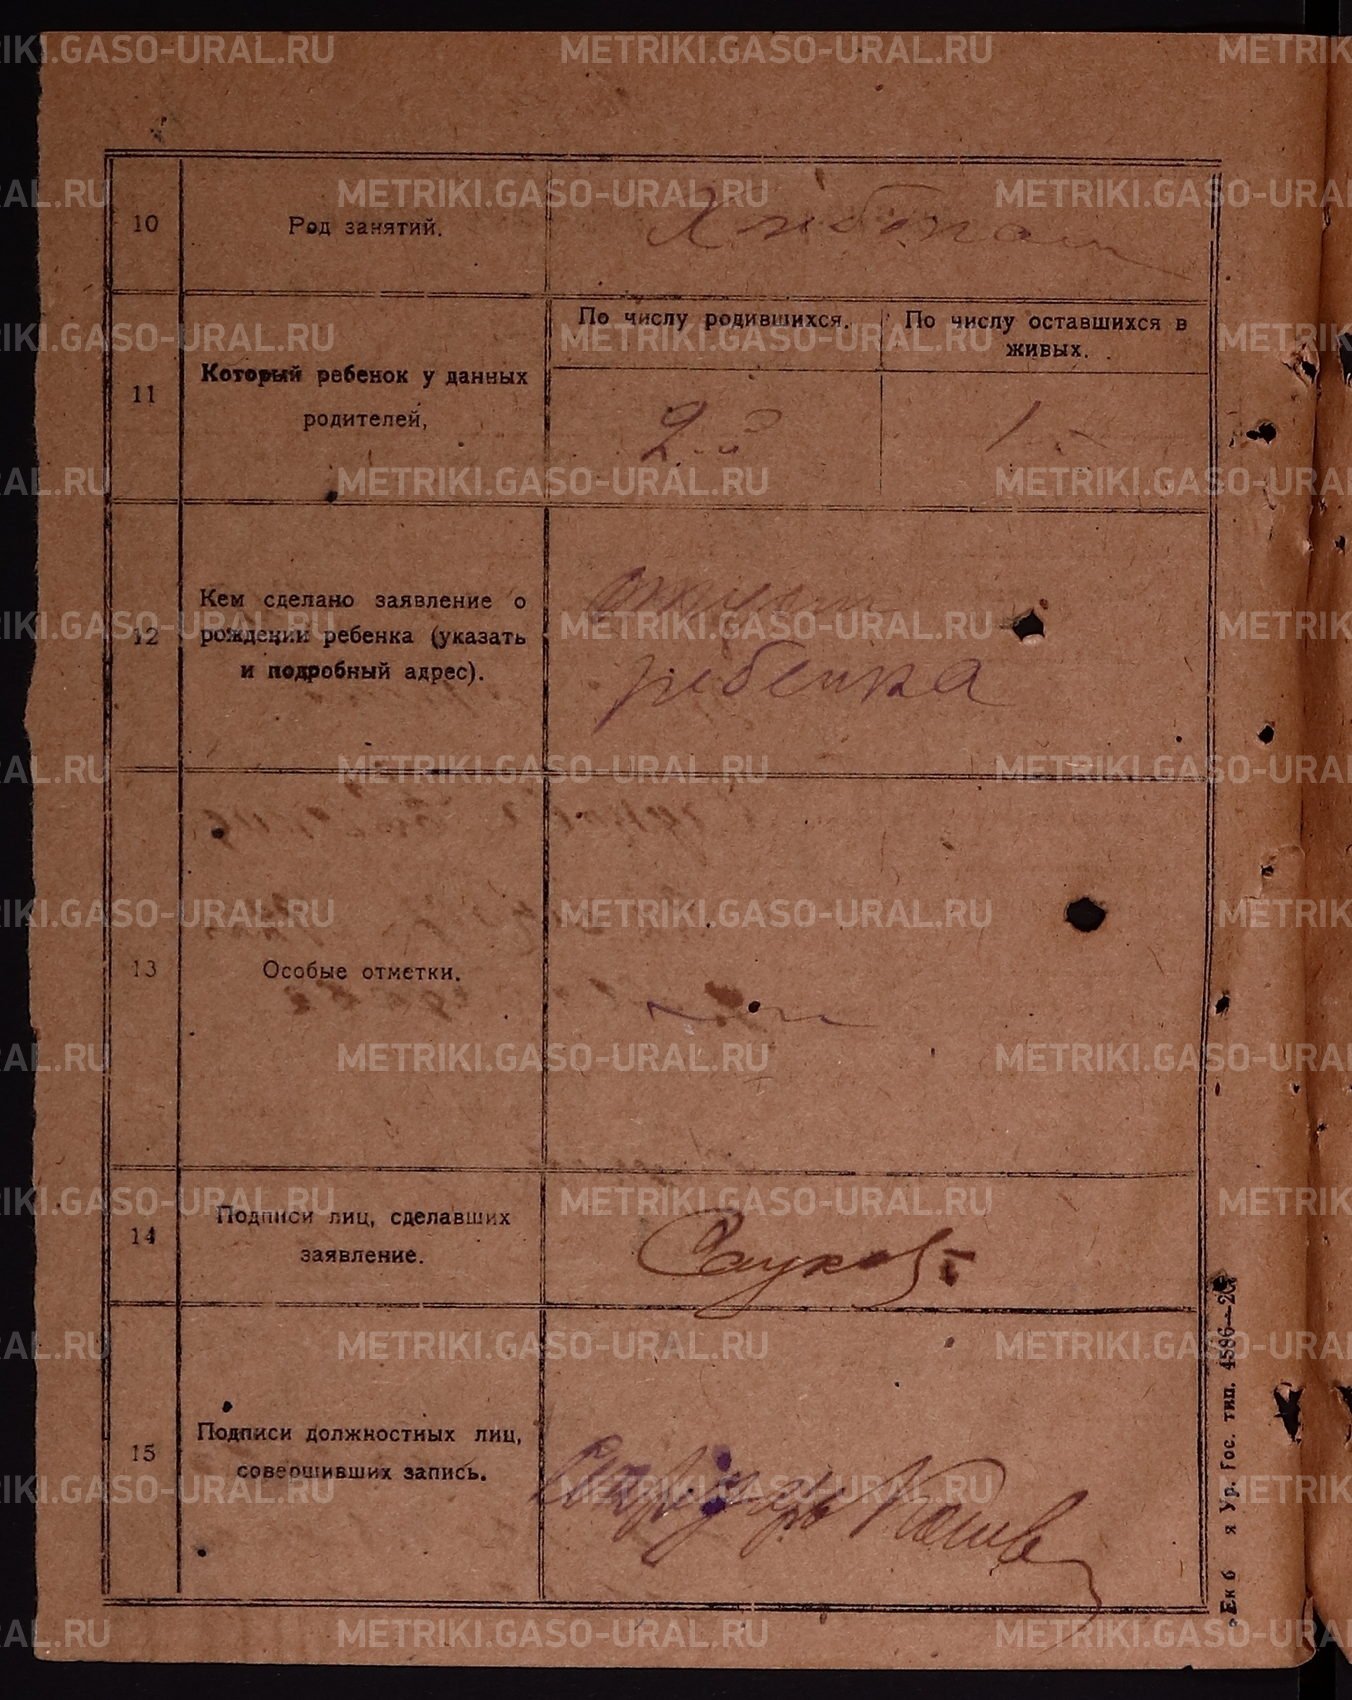 10
Род занятий.
Хлебопаш
11
Который ребенок у данных
родителей,
По числу родившихся.
По числу оставшихся в
живых.
2-й
1
12
Кем сделано заявление о
рождении ребенка (указать
и подробный адрес).
отцем
ребенка
13
Особые отметки.
14
Подписи лиц, сделавших
заявление.
Сауков
15
Подписи должностных лиц,
совершивших запись.
Ур. Гос. тип. 4586—2
METRIKI.GASO-URAL.RU